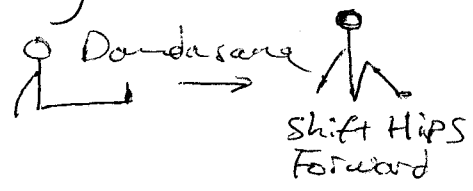 Dandasana
Shift Hips
Forward